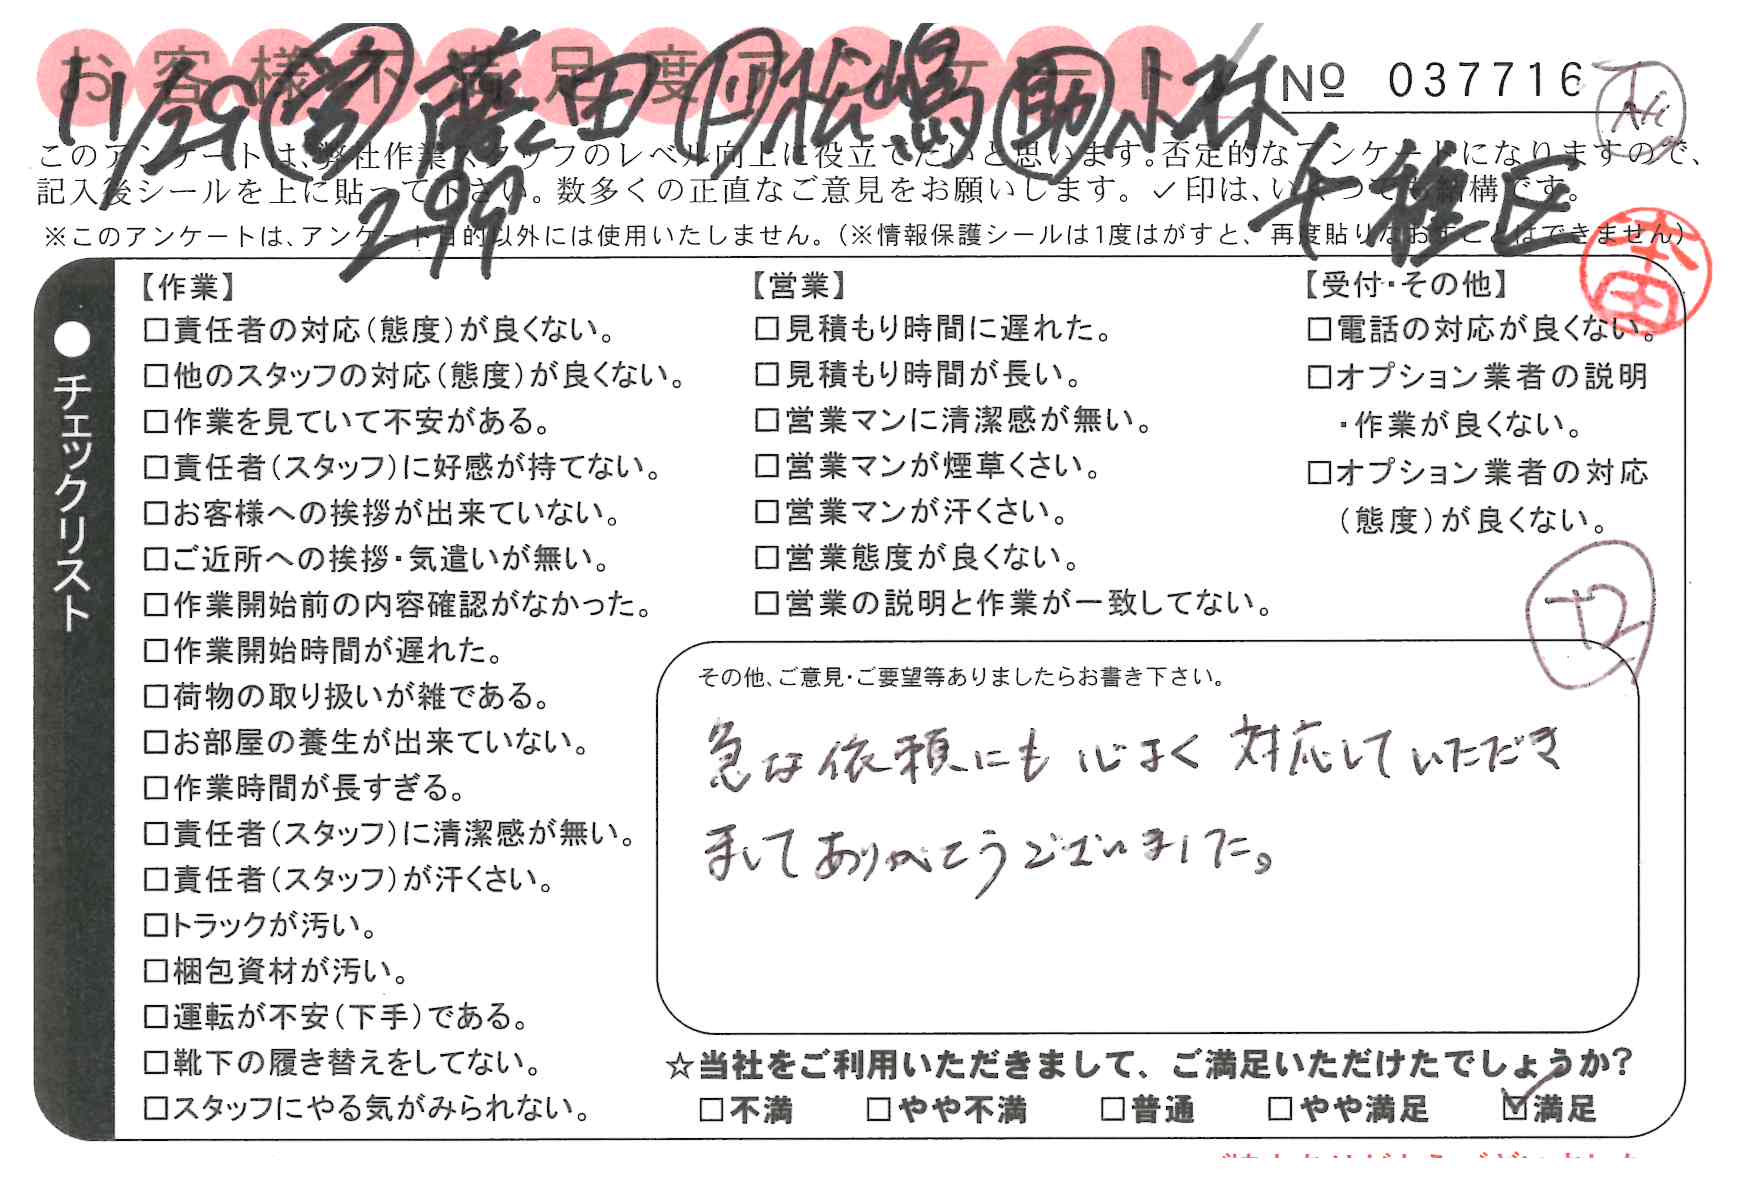 お客様不満足度アンケート
11/29 営 藤田 作 松嶋 助 小林
№ 037716
299
千種区
このアンケートは、弊社作業スタッフのレベル向上に役立てたいと思います。否定的なアンケートになりますので、
記入後シールを上に貼って下さい。数多くの正直なご意見をお願いします。✓印は、いくつでも結構です。
※このアンケートは、アンケート目的以外には使用いたしません。(※情報保護シールは1度はがすと、再度貼りなおすことはできません)
本田
●チェックリスト
【作業】
□責任者の対応(態度)が良くない。
□他のスタッフの対応(態度)が良くない。
□作業を見ていて不安がある。
□責任者(スタッフ)に好感が持てない。
□お客様への挨拶が出来ていない。
□ご近所への挨拶・気遣いが無い。
□作業開始前の内容確認がなかった。
□作業開始時間が遅れた。
□荷物の取り扱いが雑である。
□お部屋の養生が出来ていない。
□作業時間が長すぎる。
□責任者(スタッフ)に清潔感が無い。
□責任者(スタッフ)が汗くさい。
□トラックが汚い。
□梱包資材が汚い。
□運転が不安(下手)である。
□靴下の履き替えをしてない。
□スタッフにやる気がみられない。
【営業】
□見積もり時間に遅れた。
□見積もり時間が長い。
□営業マンに清潔感が無い。
□営業マンが煙草くさい。
□営業マンが汗くさい。
□営業態度が良くない。
□営業の説明と作業が一致してない。
【受付・その他】
□電話の対応が良くない。
□オプション業者の説明
・作業が良くない。
□オプション業者の対応
(態度)が良くない。
その他、ご意見・ご要望等ありましたらお書き下さい。
急な依頼にも心よく対応していただき
ましてありがとうございました。
☆当社をご利用いただきまして、ご満足いただけたでしょうか?
□不満 □やや不満 □普通 □やや満足 ☑満足